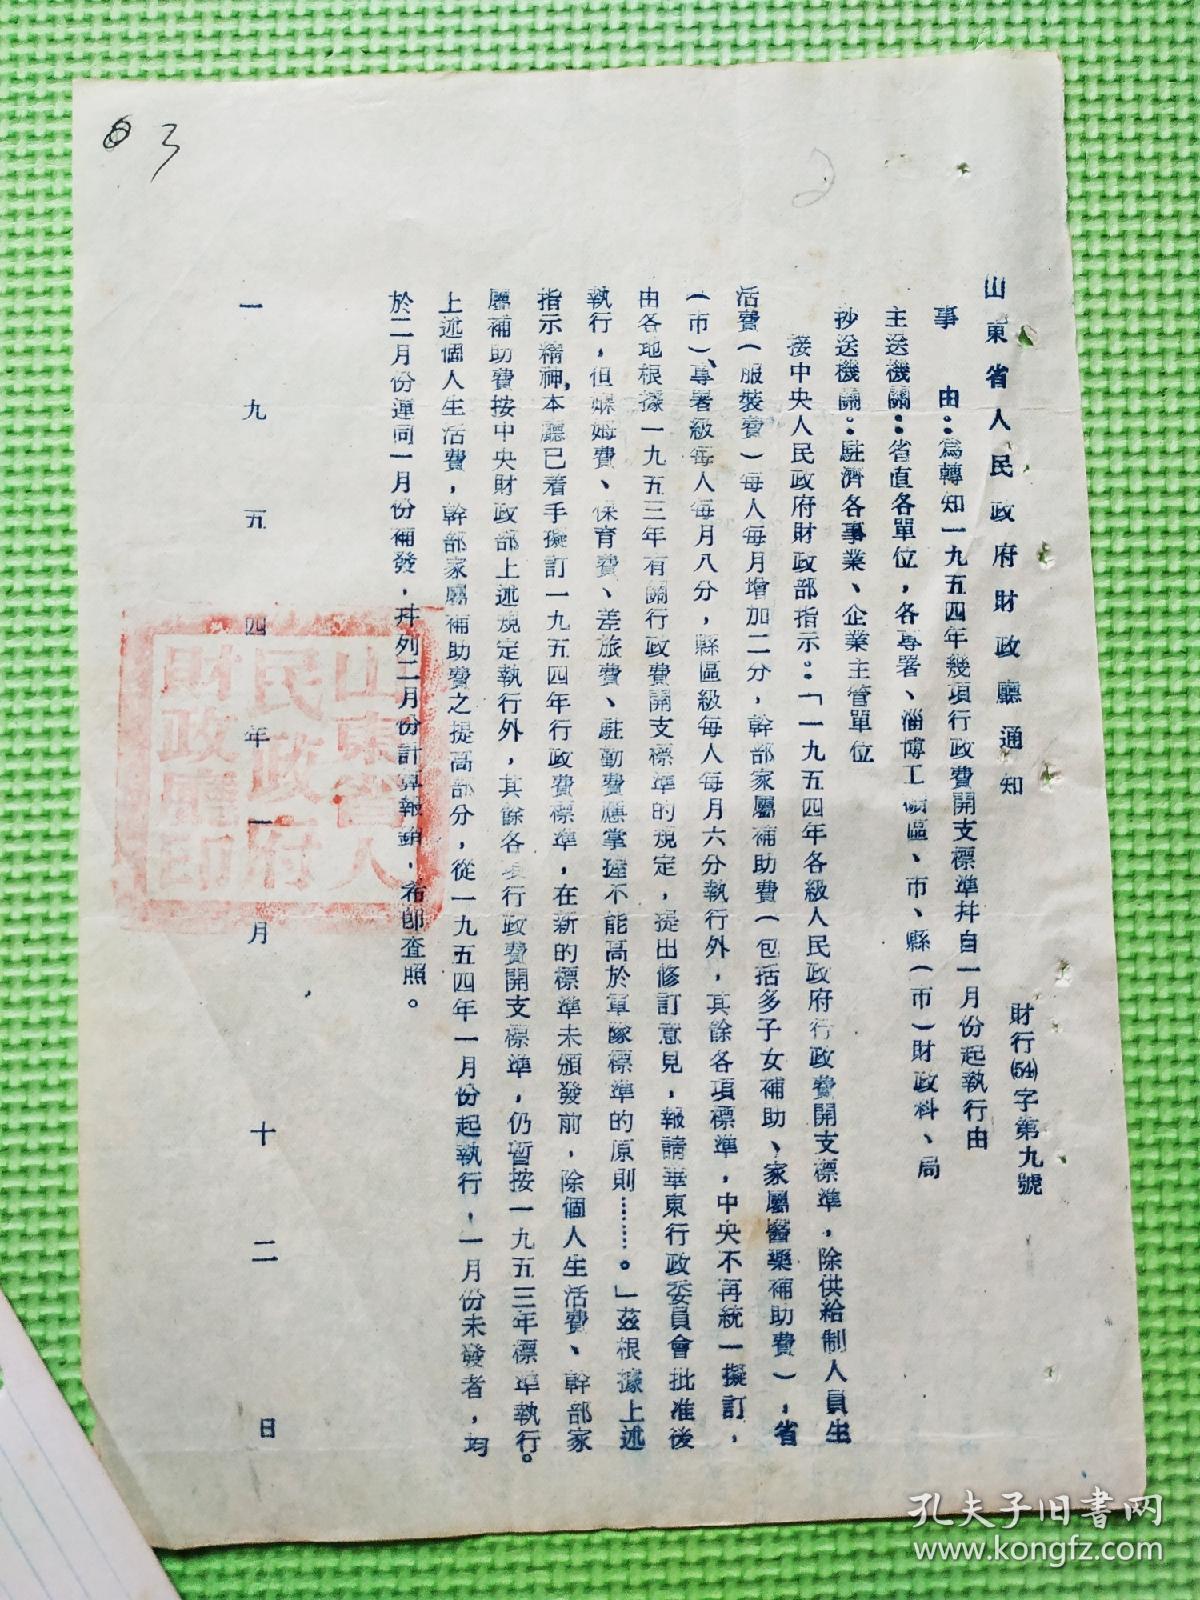 山東省人民政府財政廳通知
財行(54)字第九號
事　由：為轉知一九五四年幾項行政費開支標準并自一月份起執行由
主送機關：省直各單位，各專署、淄博工礦區、市、縣（市）財政科、局
抄送機關：駐濟各事業、企業主管單位
接中央人民政府財政部指示：「一九五四年各級人民政府行政費開支標準，除供給制人員生
活費（服裝費）每人每月增加二分，幹部家屬補助費（包括多子女補助、家屬醫藥補助費），省
（市）、專署級每人每月八分，縣區級每人每月六分執行外，其餘各項標準，中央不再統一擬訂，
由各地根據一九五三年有關行政費開支標準的規定，提出修訂意見，報請華東行政委員會批准後
執行，但媬姆費、保育費、差旅費、駐勤費應掌握不能高於軍隊標準的原則………。」茲根據上述
指示精神，本廳已着手擬訂一九五四年行政費標準，在新的標準未頒發前，除個人生活費、幹部家
屬補助費按中央財政部上述規定執行外，其餘各項行政費開支標準，仍暫按一九五三年標準執行。
上述個人生活費，幹部家屬補助費之提高部分，從一九五四年一月份起執行，一月份未發者，均
於二月份連同一月份補發，并列二月份計算報銷，希即查照。
一九五四年一月十二日
山東省人
民政府
財政廳印
63
2
孔夫子旧書网
www.kongfz.com